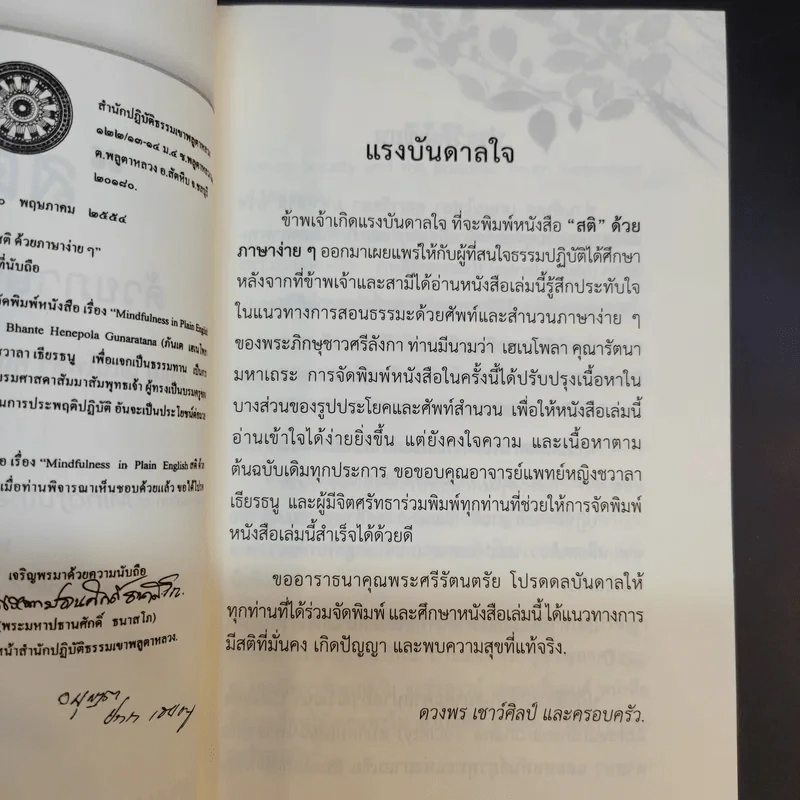 สำนักปฏิบัติธรรมเขาพลูตาหลวง
๑๒๒/๑๓-๑๔ ม.๔ ซ.พลูตาหลวง
ต.พลูตาหลวง อ.สัตหีบ จ.ชลบุรี
๒๐๑๘๐.
พฤษภาคม ๒๕๕๔
สติ ด้วยภาษาง่าย ๆ"
ที่นับถือ
จัดพิมพ์หนังสือ เรื่อง "Mindfulness in Plain English
Bhante Henepola Gunaratana (ภันเต เฮเน
ชวาลา เธียรธนู เพื่อแจกเป็นธรรมทาน
บรมศาสดาสัมมาสัมพุทธเจ้า ผู้ทรงเป็นบรมครู
ในการประพฤติปฏิบัติ อันจะเป็นประโยชน์
อ เรื่อง "Mindfulness in Plain English สติ ด้
เมื่อท่านพิจารณาเห็นชอบด้วยแล้ว ขอได้โป
เจริญพรมาด้วยความนับถือ
(พระมหาปธานศักดิ์ ธนาสโภ)
หน้าสำนักปฏิบัติธรรมเขาพลูตาหลวง.
แรงบันดาลใจ
ข้าพเจ้าเกิดแรงบันดาลใจ ที่จะพิมพ์หนังสือ "สติ" ด้วย
ภาษาง่าย ๆ ออกมาเผยแพร่ให้กับผู้ที่สนใจธรรมปฏิบัติได้ศึกษา
หลังจากที่ข้าพเจ้าและสามีได้อ่านหนังสือเล่มนี้รู้สึกประทับใจ
ในแนวทางการสอนธรรมะด้วยศัพท์และสำนวนภาษาง่าย ๆ
ของพระภิกษุชาวศรีลังกา ท่านมีนามว่า เฮเนโพลา คุณารัตนา
มหาเถระ การจัดพิมพ์หนังสือในครั้งนี้ได้ปรับปรุงเนื้อหาใน
บางส่วนของรูปประโยคและศัพท์สำนวน เพื่อให้หนังสือเล่มนี้
อ่านเข้าใจได้ง่ายยิ่งขึ้น แต่ยังคงใจความ และเนื้อหาตาม
ต้นฉบับเดิมทุกประการ ขอขอบคุณอาจารย์แพทย์หญิงชวาลา
เธียรธนู และผู้มีจิตศรัทธาร่วมพิมพ์ทุกท่านที่ช่วยให้การจัดพิมพ์
หนังสือเล่มนี้สำเร็จได้ด้วยดี
ขออาราธนาคุณพระศรีรัตนตรัย โปรดดลบันดาลให้
ทุกท่านที่ได้ร่วมจัดพิมพ์ และศึกษาหนังสือเล่มนี้ ได้แนวทางการ
มีสติที่มั่นคง เกิดปัญญา และพบความสุขที่แท้จริง.
ดวงพร เชาว์ศิลป์ และครอบครัว.